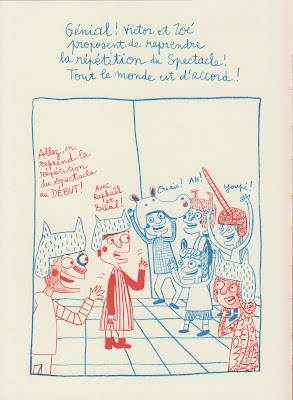 Génial! Victor et Zoé
proposent de reprendre
la répétition du Spectacle!
Tout le monde est d'accord!
Allez, on
reprend la
répétition
du spectacle
au DEBUT!
Avec
Raphaël
et
Bilal!
Ouais!
Ah!
Youpi!